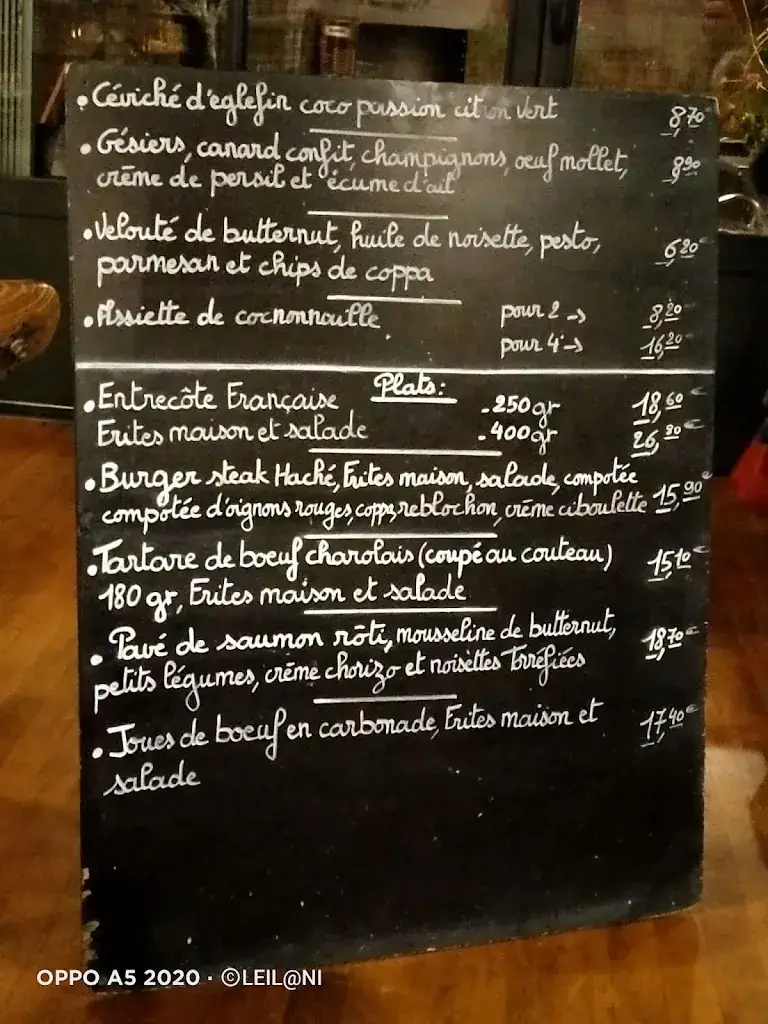 • Céviché d'églefin coco passion citron vert 8,70
• Gésiers, canard confit, champignons, œuf mollet, 8,90
crème de persil et écume d'ail
• Velouté de butternut, huile de noisette, pesto, 6,20€
parmesan et chips de coppa
• Assiette de cochonnaille pour 2 → 8,20
pour 4 → 16,20
Plats:
• Entrecôte Française - 250 gr 18,60 €
Frites maison et salade - 400 gr 26,20 €
• Burger steak Haché, Frites maison, salade, compotée
compotée d'oignons rouges, coppa, reblochon, crème ciboulette 15,90€
• Tartare de bœuf charolais (coupé au couteau) 15,10€
180 gr, Frites maison et salade
• Pavé de saumon rôti, mousseline de butternut, 18,70€
petits légumes, crème chorizo et noisettes Torréfiées
• Joues de boeuf en carbonade, Frites maison et 17,40€
salade
OPPO A5 2020 · ©LEIL@NI